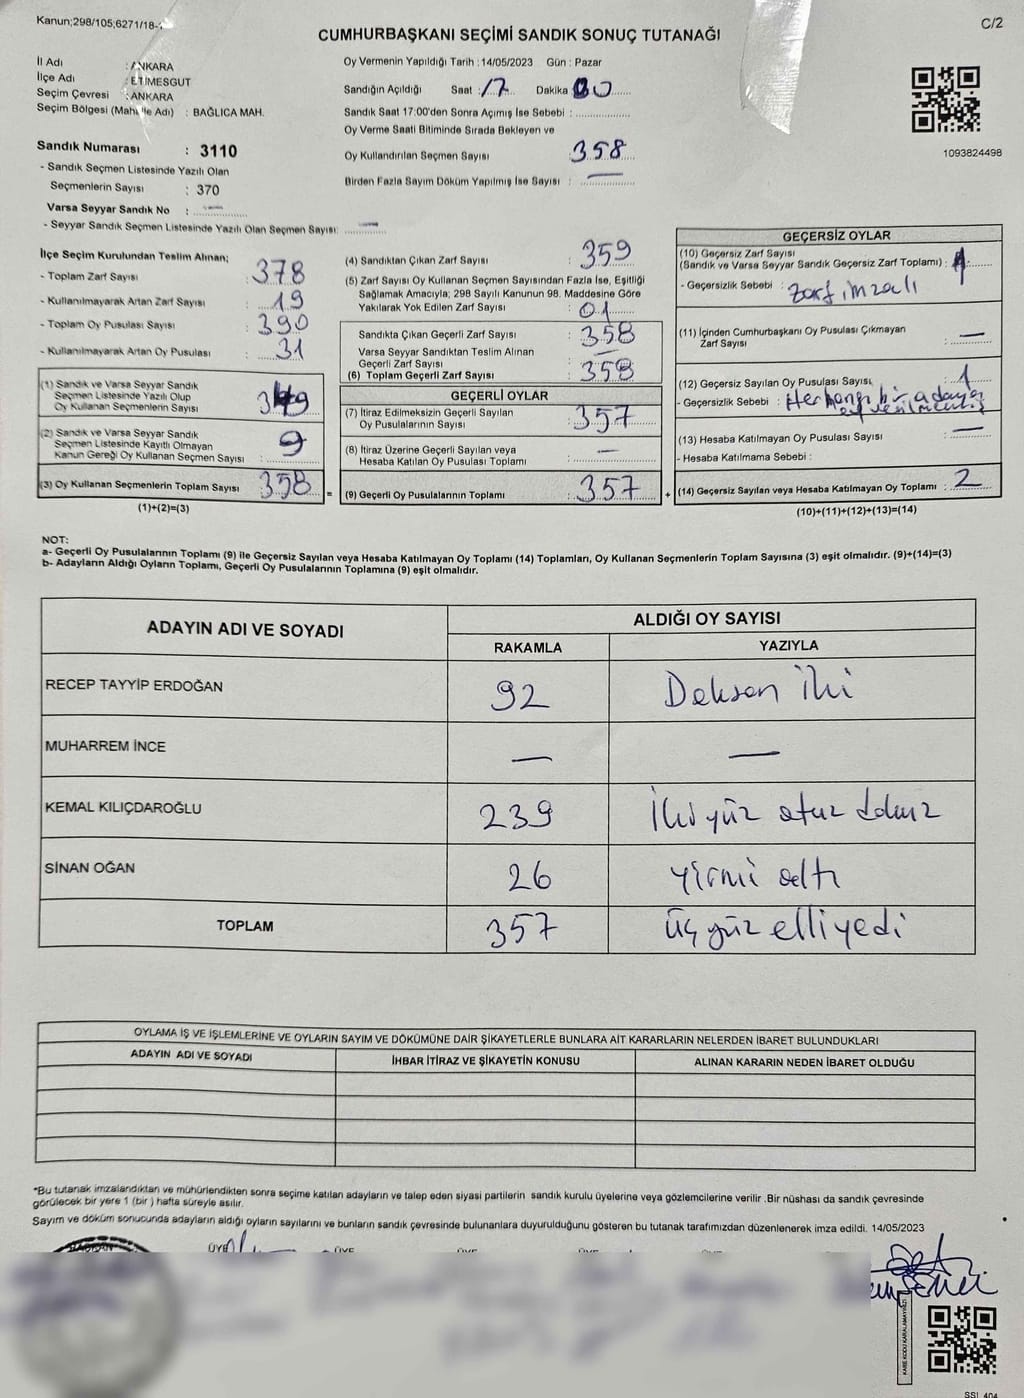 Kanun;298/105;6271/18-
C/2
CUMHURBAŞKANI SEÇİMİ SANDIK SONUÇ TUTANAĞI
İl Adı : ANKARA
İlçe Adı : ETİMESGUT
Seçim Çevresi : ANKARA
Seçim Bölgesi (Mahalle Adı) : BAĞLICA MAH.
Sandık Numarası : 3110
- Sandık Seçmen Listesinde Yazılı Olan
Seçmenlerin Sayısı : 370
Varsa Seyyar Sandık No : —
- Seyyar Sandık Seçmen Listesinde Yazılı Olan Seçmen Sayısı: —
Oy Vermenin Yapıldığı Tarih : 14/05/2023 Gün : Pazar
Sandığın Açıldığı Saat : 17 Dakika 00
Sandık Saat 17:00'den Sonra Açımış İse Sebebi :
Oy Verme Saati Bitiminde Sırada Bekleyen ve
Oy Kullandırılan Seçmen Sayısı 358
Birden Fazla Sayım Döküm Yapılmış İse Sayısı : —
1093824498
İlçe Seçim Kurulundan Teslim Alınan;
- Toplam Zarf Sayısı : 378
- Kullanılmayarak Artan Zarf Sayısı : 19
- Toplam Oy Pusulası Sayısı : 390
- Kullanılmayarak Artan Oy Pusulası : 31
(1) Sandık ve Varsa Seyyar Sandık
Seçmen Listesinde Yazılı Olup
Oy Kullanan Seçmenlerin Sayısı 349
(2) Sandık ve Varsa Seyyar Sandık
Seçmen Listesinde Kayıtlı Olmayan
Kanun Gereği Oy Kullanan Seçmen Sayısı : 9
(3) Oy Kullanan Seçmenlerin Toplam Sayısı 358
(1)+(2)=(3)
(4) Sandıktan Çıkan Zarf Sayısı : 359
(5) Zarf Sayısı Oy Kullanan Seçmen Sayısından Fazla İse, Eşitliği
Sağlamak Amacıyla; 298 Sayılı Kanunun 98. Maddesine Göre
Yakılarak Yok Edilen Zarf Sayısı : 01
Sandıkta Çıkan Geçerli Zarf Sayısı : 358
Varsa Seyyar Sandıktan Teslim Alınan
Geçerli Zarf Sayısı : —
(6) Toplam Geçerli Zarf Sayısı : 358
GEÇERLİ OYLAR
(7) İtiraz Edilmeksizin Geçerli Sayılan
Oy Pusulalarının Sayısı : 357
(8) İtiraz Üzerine Geçerli Sayılan veya
Hesaba Katılan Oy Pusulası Toplamı : —
= (9) Geçerli Oy Pusulalarının Toplamı : 357 +
GEÇERSİZ OYLAR
(10) Geçersiz Zarf Sayısı
(Sandık ve Varsa Seyyar Sandık Geçersiz Zarf Toplamı) : 1
- Geçersizlik Sebebi : Zarf imzalı
(11) İçinden Cumhurbaşkanı Oy Pusulası Çıkmayan
Zarf Sayısı : —
(12) Geçersiz Sayılan Oy Pusulası Sayısı : 1
- Geçersizlik Sebebi : Herhangi bir adaya
oy verilmemiş
(13) Hesaba Katılmayan Oy Pusulası Sayısı : —
- Hesaba Katılmama Sebebi :
(14) Geçersiz Sayılan veya Hesaba Katılmayan Oy Toplamı : 2
(10)+(11)+(12)+(13)=(14)
NOT:
a- Geçerli Oy Pusulalarının Toplamı (9) ile Geçersiz Sayılan veya Hesaba Katılmayan Oy Toplamı (14) Toplamları, Oy Kullanan Seçmenlerin Toplam Sayısına (3) eşit olmalıdır. (9)+(14)=(3)
b- Adayların Aldığı Oyların Toplamı, Geçerli Oy Pusulalarının Toplamına (9) eşit olmalıdır.
ADAYIN ADI VE SOYADI ALDIĞI OY SAYISI
RAKAMLA YAZIYLA
RECEP TAYYİP ERDOĞAN 92 Doksan iki
MUHARREM İNCE — —
KEMAL KILIÇDAROĞLU 239 İkiyüz otuz dokuz
SİNAN OĞAN 26 yirmi altı
TOPLAM 357 üçyüz elliyedi
OYLAMA İŞ VE İŞLEMLERİNE VE OYLARIN SAYIM VE DÖKÜMÜNE DAİR ŞİKAYETLERLE BUNLARA AİT KARARLARIN NELERDEN İBARET BULUNDUKLARI
ADAYIN ADI VE SOYADI İHBAR İTİRAZ VE ŞİKAYETİN KONUSU ALINAN KARARIN NEDEN İBARET OLDUĞU
*Bu tutanak imzalandıktan ve mühürlendikten sonra seçime katılan adayların ve talep eden siyasi partilerin sandık kurulu üyelerine veya gözlemcilerine verilir .Bir nüshası da sandık çevresinde
görülecek bir yere 1 (bir ) hafta süreyle asılır.
Sayım ve döküm sonucunda adayların aldığı oyların sayılarını ve bunların sandık çevresinde bulunanlara duyurulduğunu gösteren bu tutanak tarafımızdan düzenlenerek imza edildi. 14/05/2023
ÜYE ÜYE ÜYE ÜYE ÜYE
KARE KODU KARALAMAYINIZ!